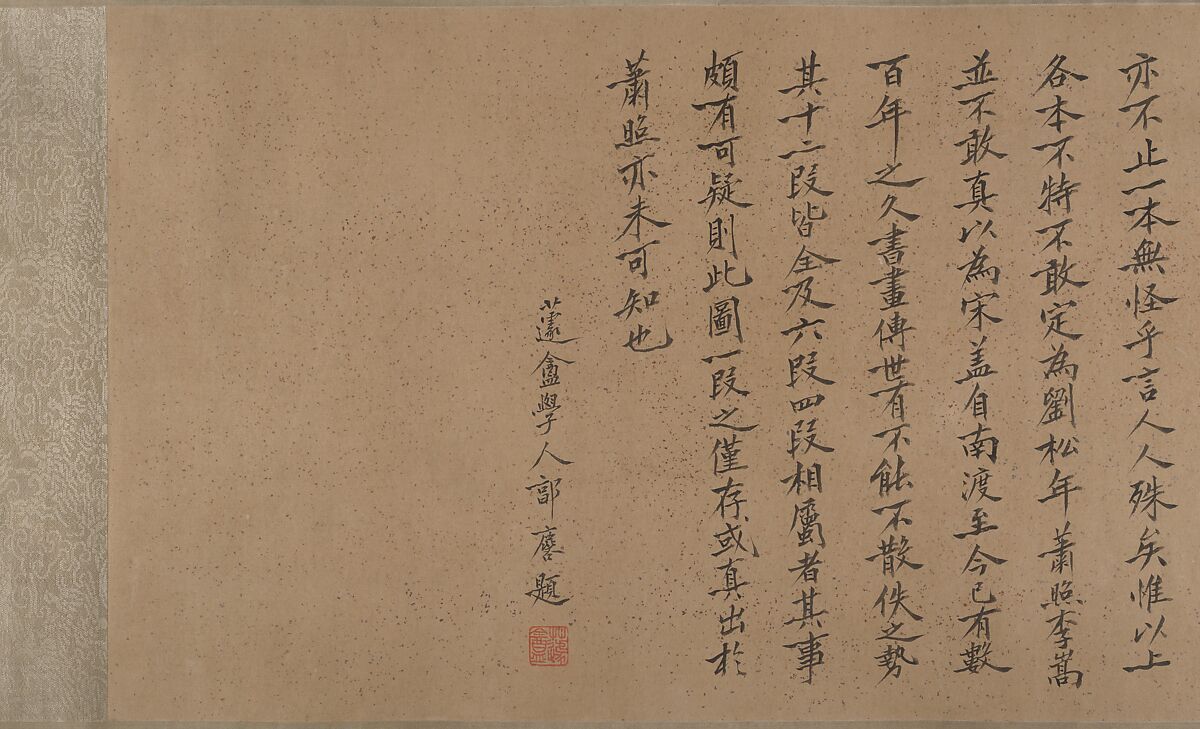 亦不止一本無怪乎言人人殊矣惟以上
各本不特不敢定為劉松年蕭照李嵩
並不敢真以為宋盖自南渡至今已有數
百年之久書畫傳世有不能不散佚之勢
其十二段皆全及六段四段相屬者其事
頗有可疑則此圖一段之僅存或真出於
蕭照亦未可知也
蘧盦學人郭麐題